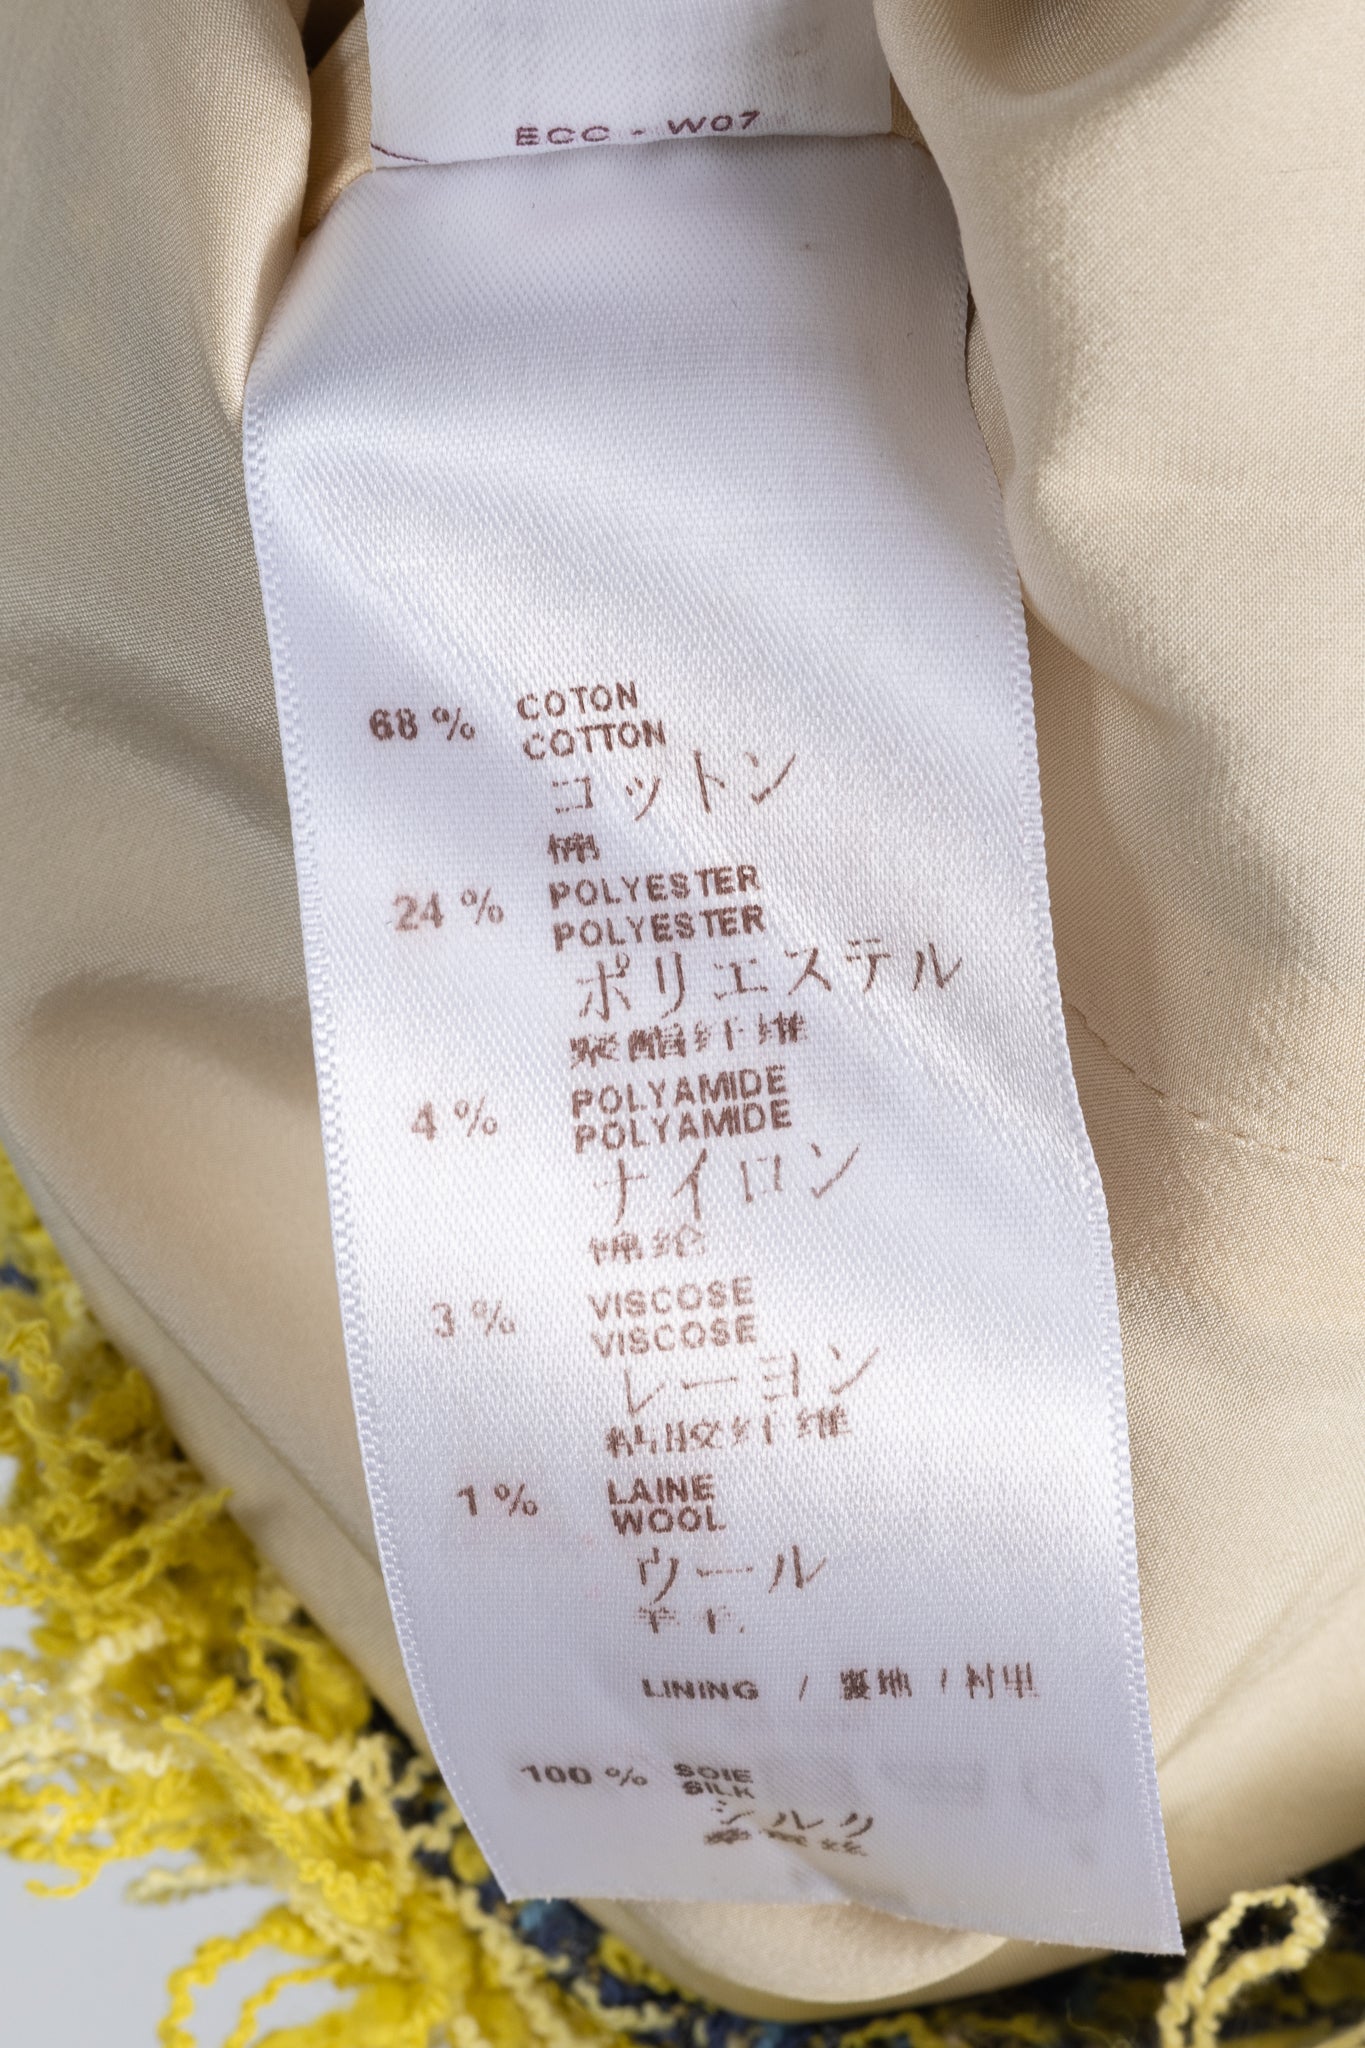 ECC - W07
68 % COTON
COTTON
コットン
棉
24 % POLYESTER
POLYESTER
ポリエステル
聚酯纤维
4 % POLYAMIDE
POLYAMIDE
ナイロン
锦纶
3 % VISCOSE
VISCOSE
レーヨン
粘胶纤维
1 % LAINE
WOOL
ウール
羊毛
LINING / 裏地 / 衬里
100 % SOIE
SILK
シルク